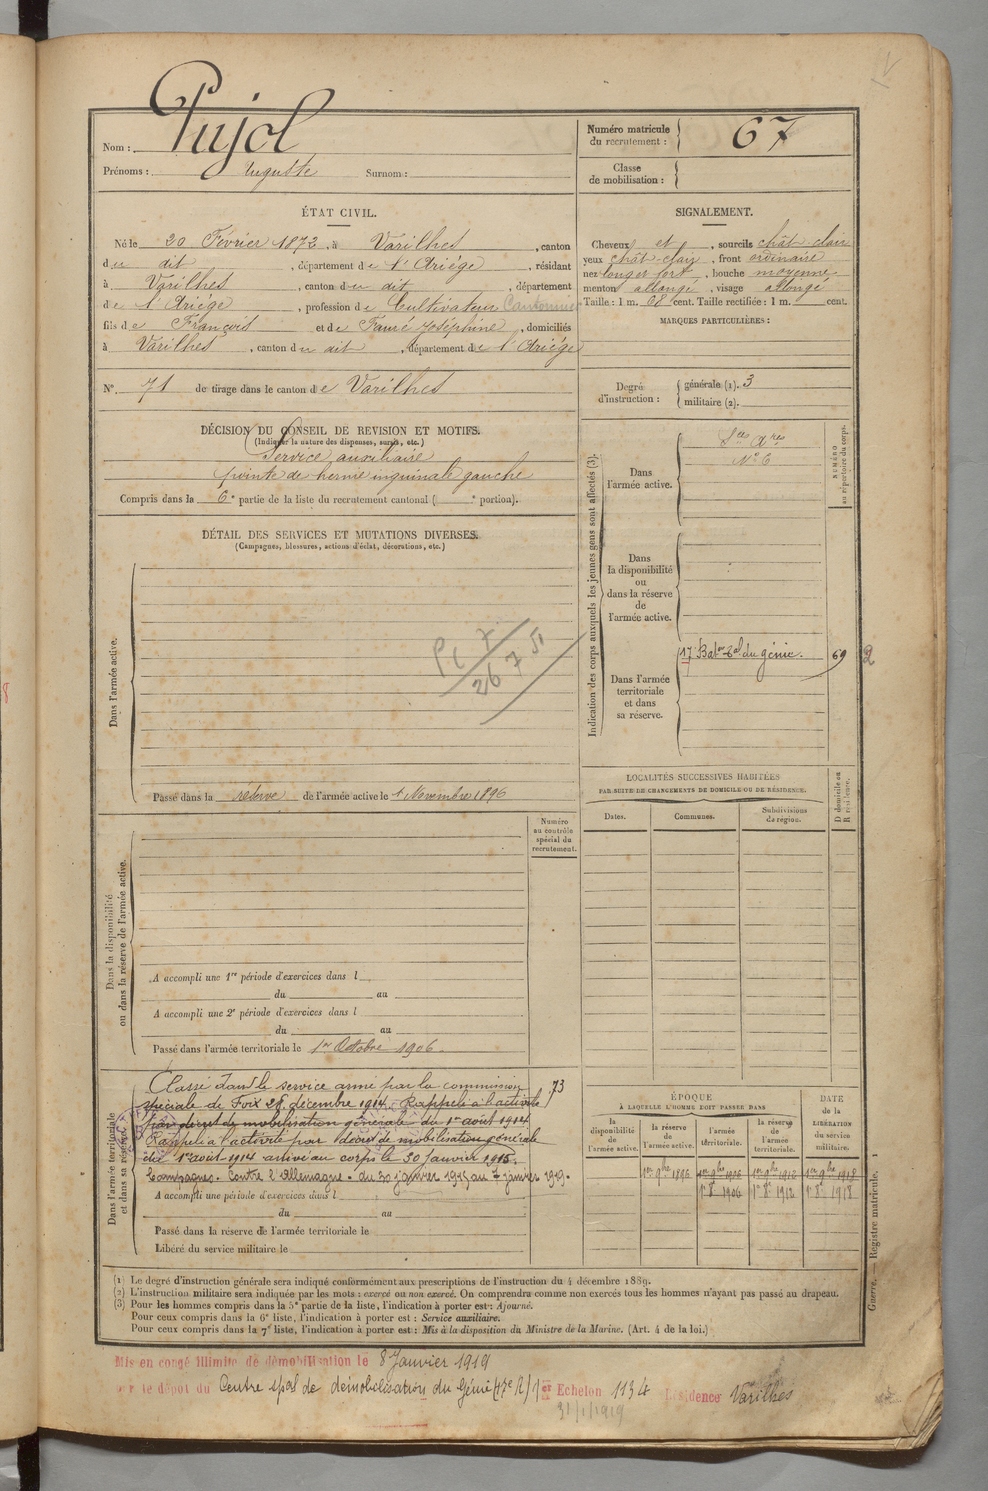 Pujol
Nom :
Prénoms : Auguste Surnom :
Numéro matricule
du recrutement : 67
Classe
de mobilisation :
ÉTAT CIVIL.
Né le 20 Février 1872, à Varilhes, canton
du dit, département de l'Ariège, résidant
à Varilhes, canton du dit, département
de l'Ariège, profession de Cultivateur Cantonnier
fils de François et de Fauré Joséphine, domiciliés
à Varilhes, canton du dit, département de l'Ariège
SIGNALEMENT.
Cheveux et, sourcils chât-clair
yeux chât-clair, front ordinaire
nez long et fort, bouche moyenne
menton allongé, visage allongé
Taille : 1 m. 68 cent. Taille rectifiée : 1 m. cent.
MARQUES PARTICULIÈRES :
N° 71 de tirage dans le canton de Varilhes
Degré
d'instruction :
générale (1). 3
militaire (2).
DÉCISION DU CONSEIL DE REVISION ET MOTIFS.
(Indiquer la nature des dispenses, sursis, etc.)
Service auxiliaire
pointe de hernie inguinale gauche
Compris dans la 6e partie de la liste du recrutement cantonal ( e portion).
DÉTAIL DES SERVICES ET MUTATIONS DIVERSES.
(Campagnes, blessures, actions d'éclat, décorations, etc.)
Dans l'armée active.
26 7 51
Passé dans la réserve de l'armée active le 1 Novembre 1896
Indication des corps auxquels les jeunes gens sont affectés (3).
NUMÉRO
au répertoire du corps.
Dans
l'armée active.
Sces Ares
N° 6
Dans
la disponibilité
ou
dans la réserve
de
l'armée active.
Dans l'armée
territoriale
et dans
sa réserve.
17 Baton Eal du génie. 69 2
LOCALITÉS SUCCESSIVES HABITÉES
PAR SUITE DE CHANGEMENTS DE DOMICILE OU DE RÉSIDENCE.
D domicile ou
R résidence.
Dates. Communes. Subdivisions
de région.
Numéro
au contrôle
spécial du
recrutement.
Dans la disponibilité
ou dans la réserve de l'armée active.
A accompli une 1re période d'exercices dans l
du au
A accompli une 2e période d'exercices dans l
du au
Passé dans l'armée territoriale le 1er Octobre 1906.
Dans l'armée territoriale
et dans sa réserve.
Classé dans le service armé par la commission 73
spéciale de Foix 28 décembre 1914. Rappelé à l'activité
par décret de mobilisation générale du 1er août 1914
Rappelé à l'activité par décret de mobilisation générale
du 1er août 1914 arrivé au corps le 30 janvier 1915.
Campagnes. Contre l'Allemagne. du 30 janvier 1915 au 7 janvier 1919.
A accompli une période d'exercices dans l
du au
Passé dans la réserve de l'armée territoriale le
Libéré du service militaire le
ÉPOQUE
À LAQUELLE L'HOMME DOIT PASSER DANS
DATE
de la
LIBÉRATION
du service
militaire.
la
disponibilité
de
l'armée active.
la réserve
de
l'armée active.
l'armée
territoriale.
la réserve
de
l'armée
territoriale.
1er 9bre 1896 1er 9bre 1906 1er 9bre 1912 1er 9bre 1918
1er 8bre 1906 1er 8bre 1912 1er 8bre 1918
Guerre. — Registre matricule. 1
(1) Le degré d'instruction générale sera indiqué conformément aux prescriptions de l'instruction du 4 décembre 1889.
(2) L'instruction militaire sera indiquée par les mots : exercé ou non exercé. On comprendra comme non exercés tous les hommes n'ayant pas passé au drapeau.
(3) Pour les hommes compris dans la 5e partie de la liste, l'indication à porter est : Ajourné.
Pour ceux compris dans la 6e liste, l'indication à porter est : Service auxiliaire.
Pour ceux compris dans la 7e liste, l'indication à porter est : Mis à la disposition du Ministre de la Marine. (Art. 4 de la loi.)
Mis en congé illimité de démobilisation le 8 Janvier 1919
par le dépôt du Centre spal de démobilisation du Génie (17e R) 1er Echelon 1134 Résidence Varilhes
31/1/1919